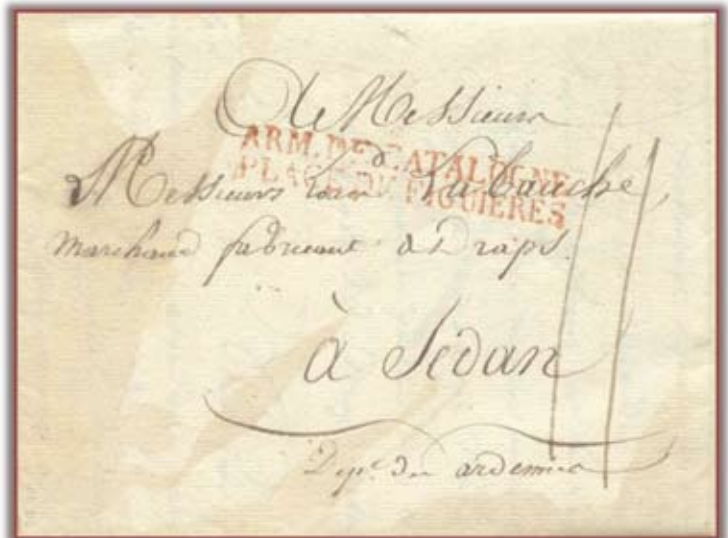 A Messieurs
ARM. DE CATALOGNE
PLACE DE FIGUIERES
Messieurs Labauche,
marchand fabricant de Draps.
à Sedan
Dept. des ardennes
11